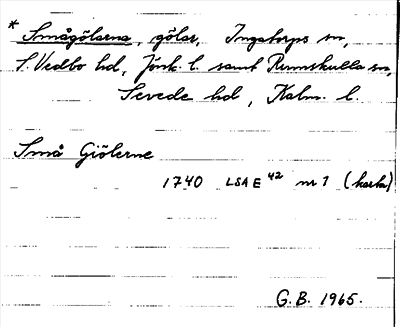 * Smågölarna, gölar, Ingatorps sn,
S. Vedbo hd, Jönk. l. samt Rumskulla sn,
Sevede hd, Kalm. l.
Små Giölerne
1740 LSA E 42 nr 1 (karta)
G.B. 1965.